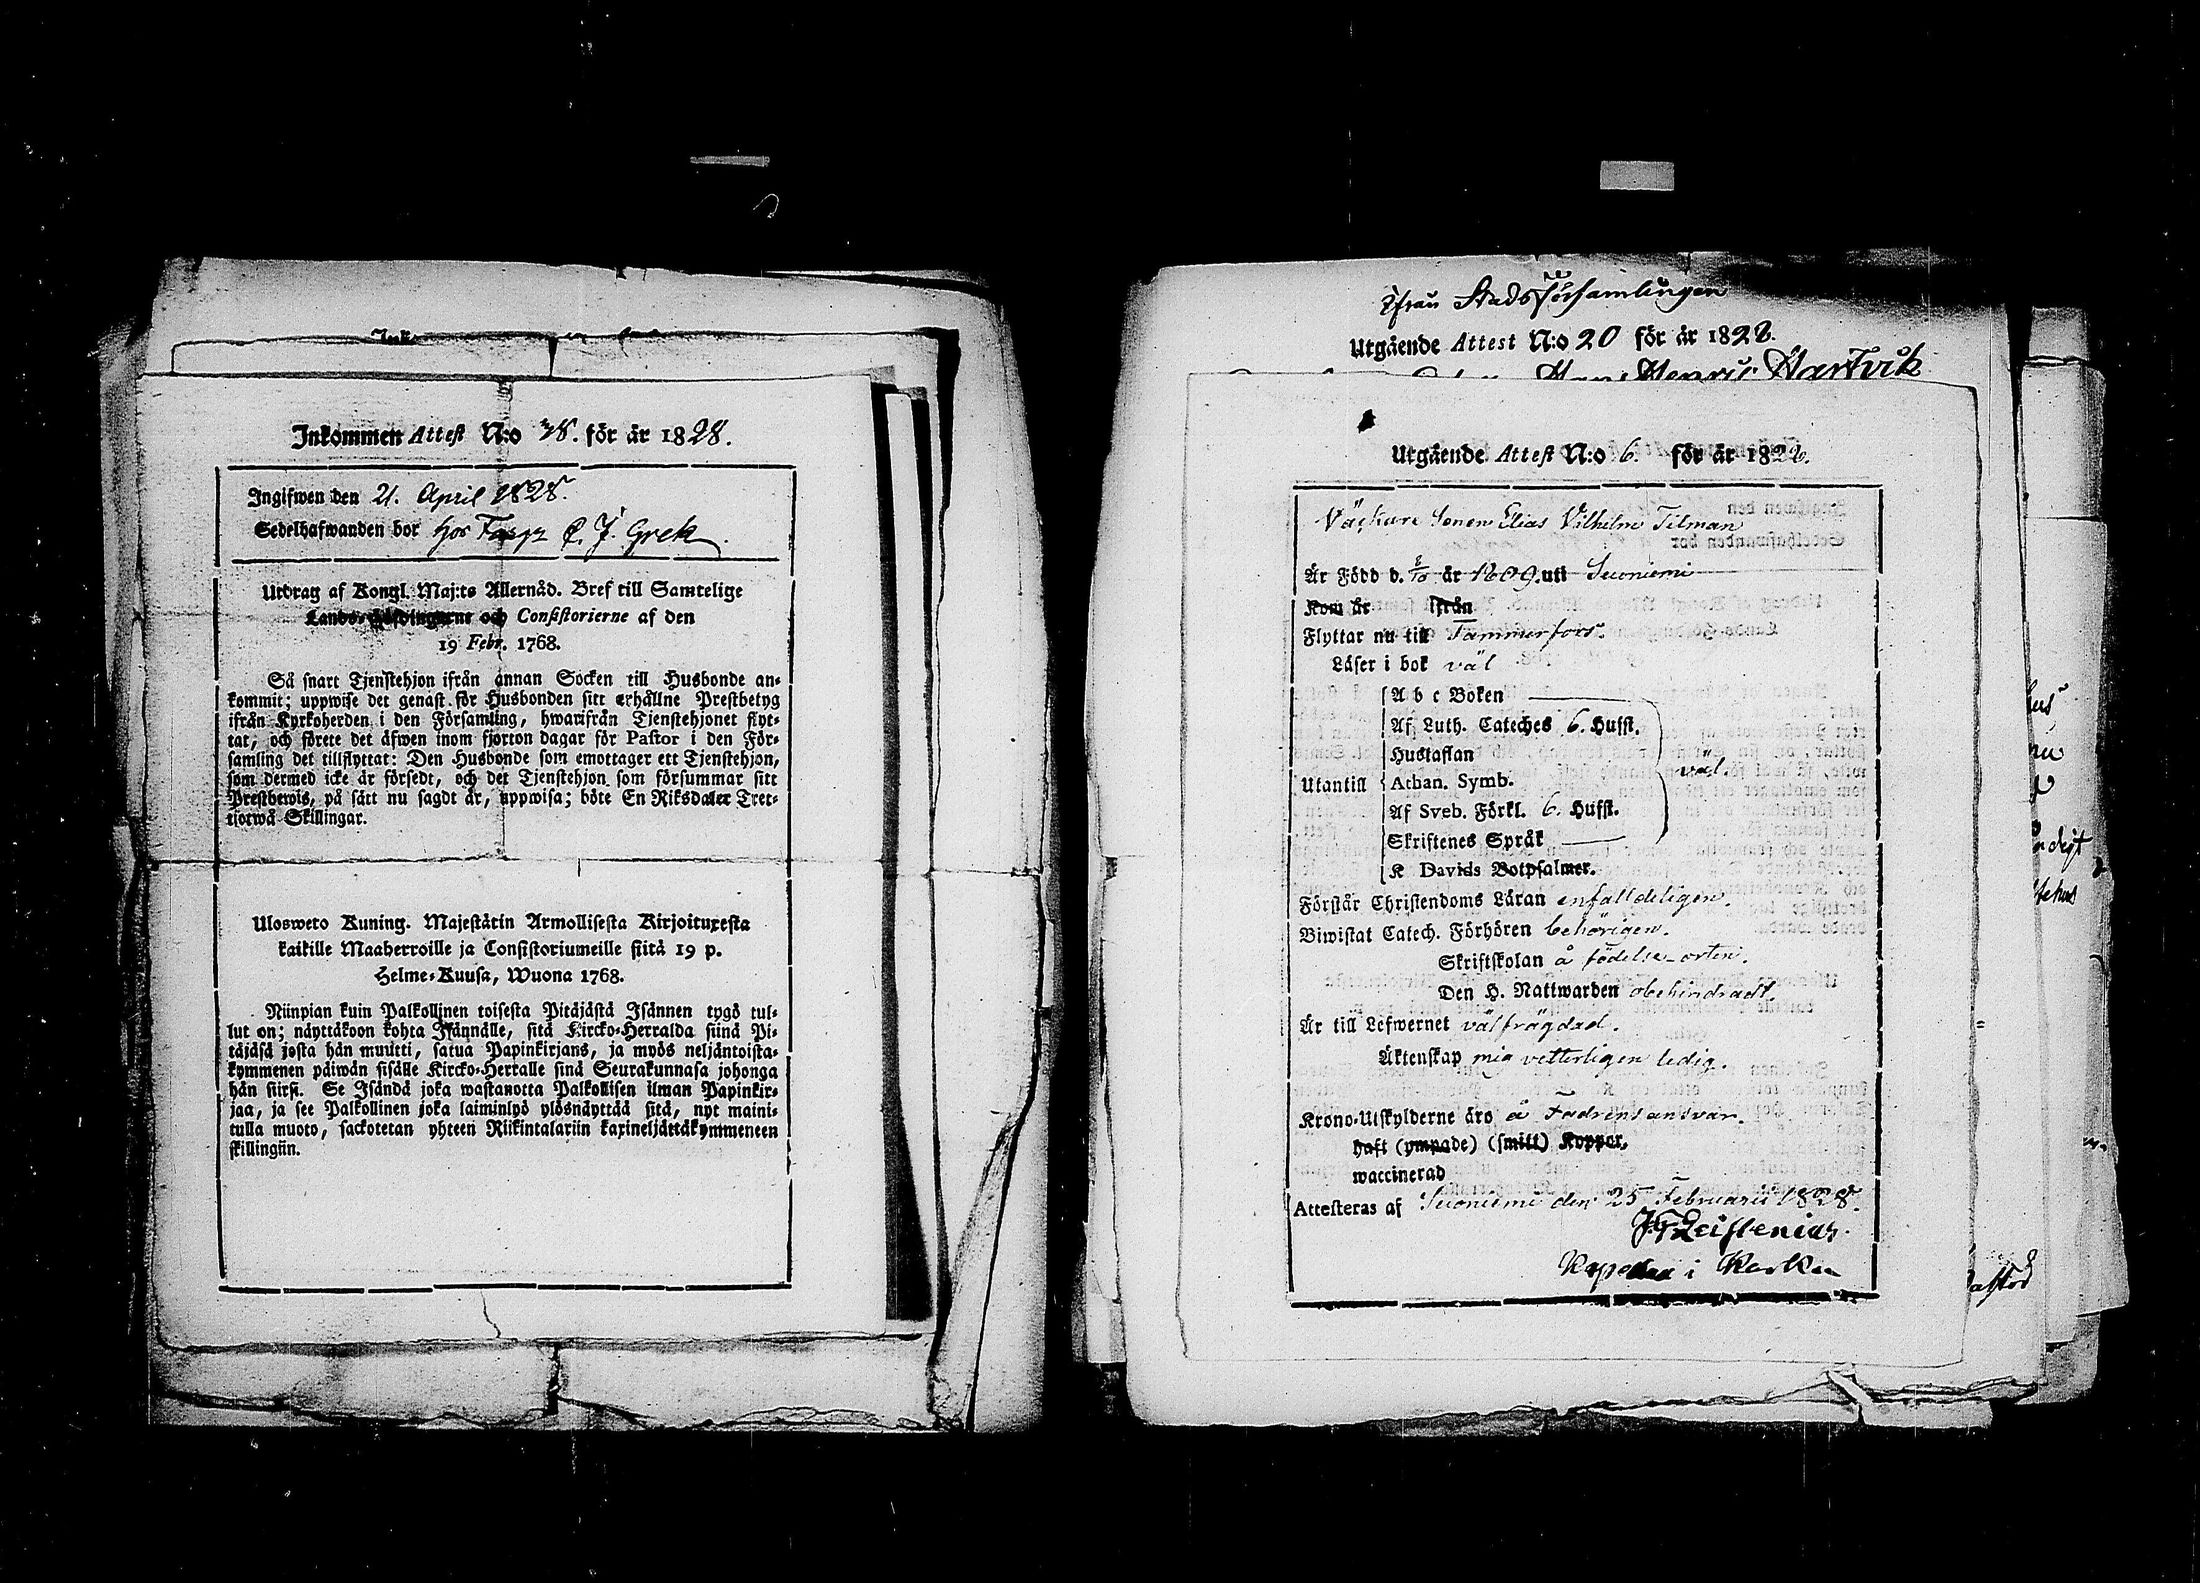 Inkommen Attest N:o 38. för år 1828.
Ingifwen den 21. April 1828.
Sedelhafwanden bor hos Fargr C. J. Grek.
Utdrag af Kongl. Maj:ts Allernåd. Bref till Samtelige
Lands-Höfdingarne och Consistorierne af den
19 Febr. 1768.
Så snart Tjenstehjon ifrån annan Socken till Husbonde an-
kommit; uppwise det genast för Husbonden sitt erhållne Prestbetyg
ifrån Kyrkoherden i den Församling, hwarifrån Tjenstehjonet flyt-
tat, och förete det äfwen inom fjorton dagar för Pastor i den För-
samling det tillflyttat: Den Husbonde som emottager ett Tjenstehjon,
som dermed icke är försedt, och det Tjenstehjon som försummar sitt
Prestbewis, på sätt nu sagdt är, uppwisa; böte En Riksdaler Tret-
tiotwå Skillingar.
Ulosweto Kuning. Majestätin Armollisesta Kirjoituxesta
kaikille Maaherroille ja Consistoriumeille siitä 19 p.
Helme-Kuusa, Wuona 1768.
Niinpian kuin Palkollinen toisesta Pitäjästä Isännen tygö tul-
lut on; näyttäkoon kohta Isännälle, sitä Kircko-Herralda siinä Pi-
täjäsä josta hän muutti, satua Papinkirjans, ja myös neljäntoista-
kymmenen päiwän sisälle Kircko-Herralle sinä Seurakunnasa johonga
hän siirsi. Se Isändä joka wastanotta Palkollisen ilman Papinkir-
jaa, ja see Palkollinen joka laiminlyö ylösnäyttää sitä, nyt maini-
tulla muoto, sackotetan yhteen Riikintalariin kaxineljättäkymmeneen
skillingiin.
ifrån Stadsförsamlingen
Utgående Attest N:o 20 för år 1828.
Hans Henric Hartvik
Utgående Attest N:o 6. för år 1828.
Väckare Sonen Elias Vilhelm Tilman
Är Född d. 8/10 år 1809. uti Suoniemi
Kom år ifrån
Flyttar nu till Tammerfors.
Läser i bok väl
A b c Boken
Af Luth. Cateches 6. Hufst.
Hustaflan
Utantill Athan. Symb. väl.
Af Sveb. Förkl. 6. Hufst.
Skriftenes Språk
K Davids Botpsalmer.
Förstår Christendoms Läran enfalldeligen.
Biwistat Catech. Förhören behörigen.
Skriftskolan å födelse-orten.
Den H. Nattwarden obehindradt.
Är till Lefwernet välfrägdad.
Äktenskap mig vetterligen ledig.
Krono-Utskylderne äro å Fadrens ansvar.
haft (ympade) (smitt) Koppor.
waccinerad
Attesteras af Suoniemi den 25 Februarii 1828.
J G Leistenius.
Kapellan i Karkku